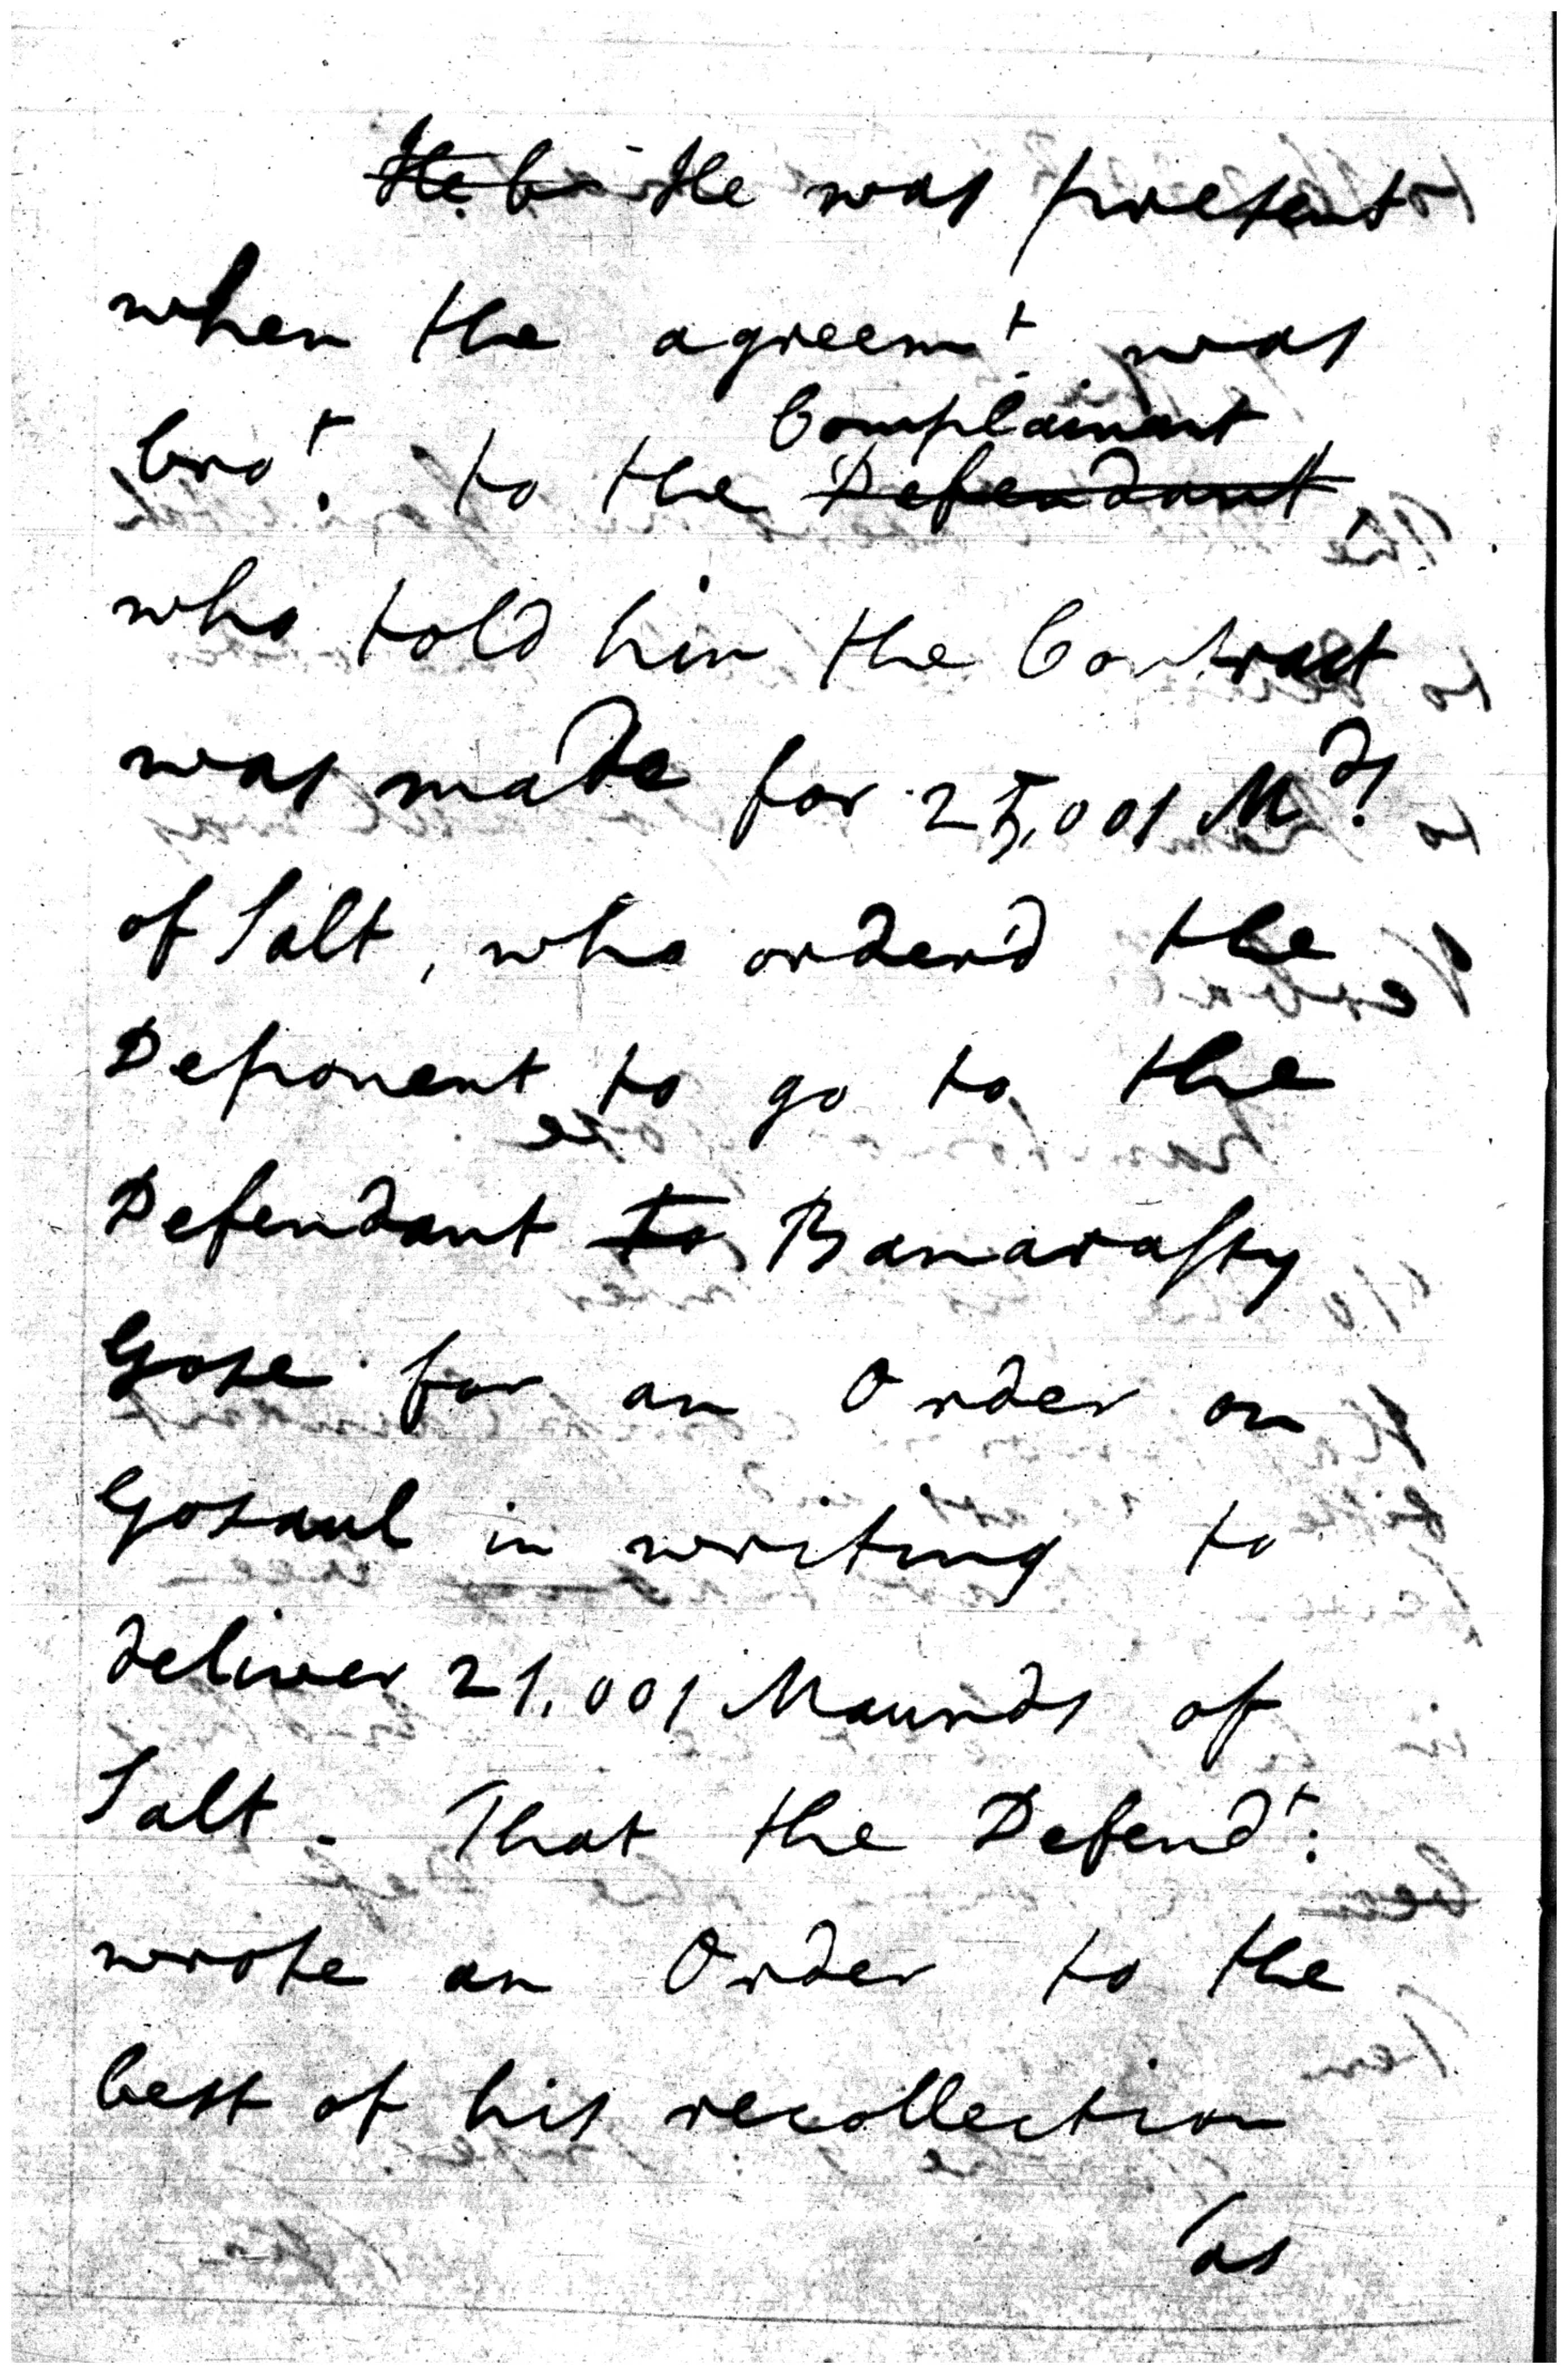 He b He was present
when the agreemt. was
Complainant
brot. to the Defendant
who told him the Contract
was made for 25,001 Mds.
of Salt, who order'd the
Deponent to go to the
Defendant to Banarassy
Gose for an Order on
Gosaul in writing to
deliver 21.001 Maunds of
Salt. That the Defendt.
wrote an Order to the
best of his recollection
as